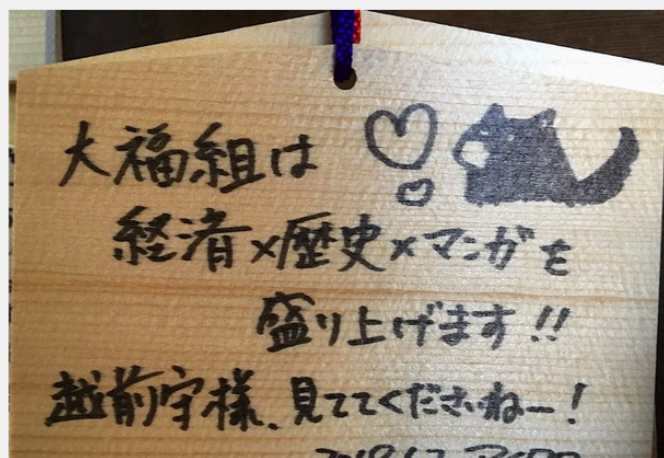 大福組は
経済×歴史×マンガを
盛り上げます!!
越前守様、見ててくださいねー!